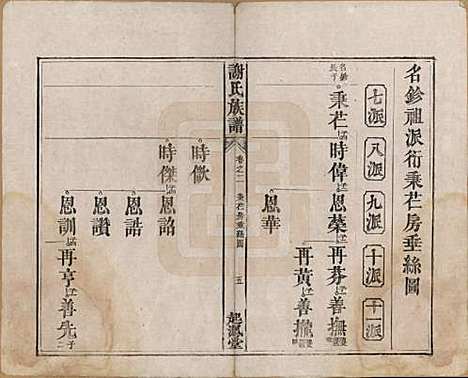 名鉁祖派衍秉芒房垂絲圖
七派
八派
九派
十派
十一派
名鉁長子
秉芒
時偉
恩榮
再芬
善撫
再黃
善攏
恩華
謝氏族譜
卷之二
秉芒房垂絲圖
五
起源堂
時歆
時傑
恩詔
恩誥
恩讚
恩訓
再亨
善先